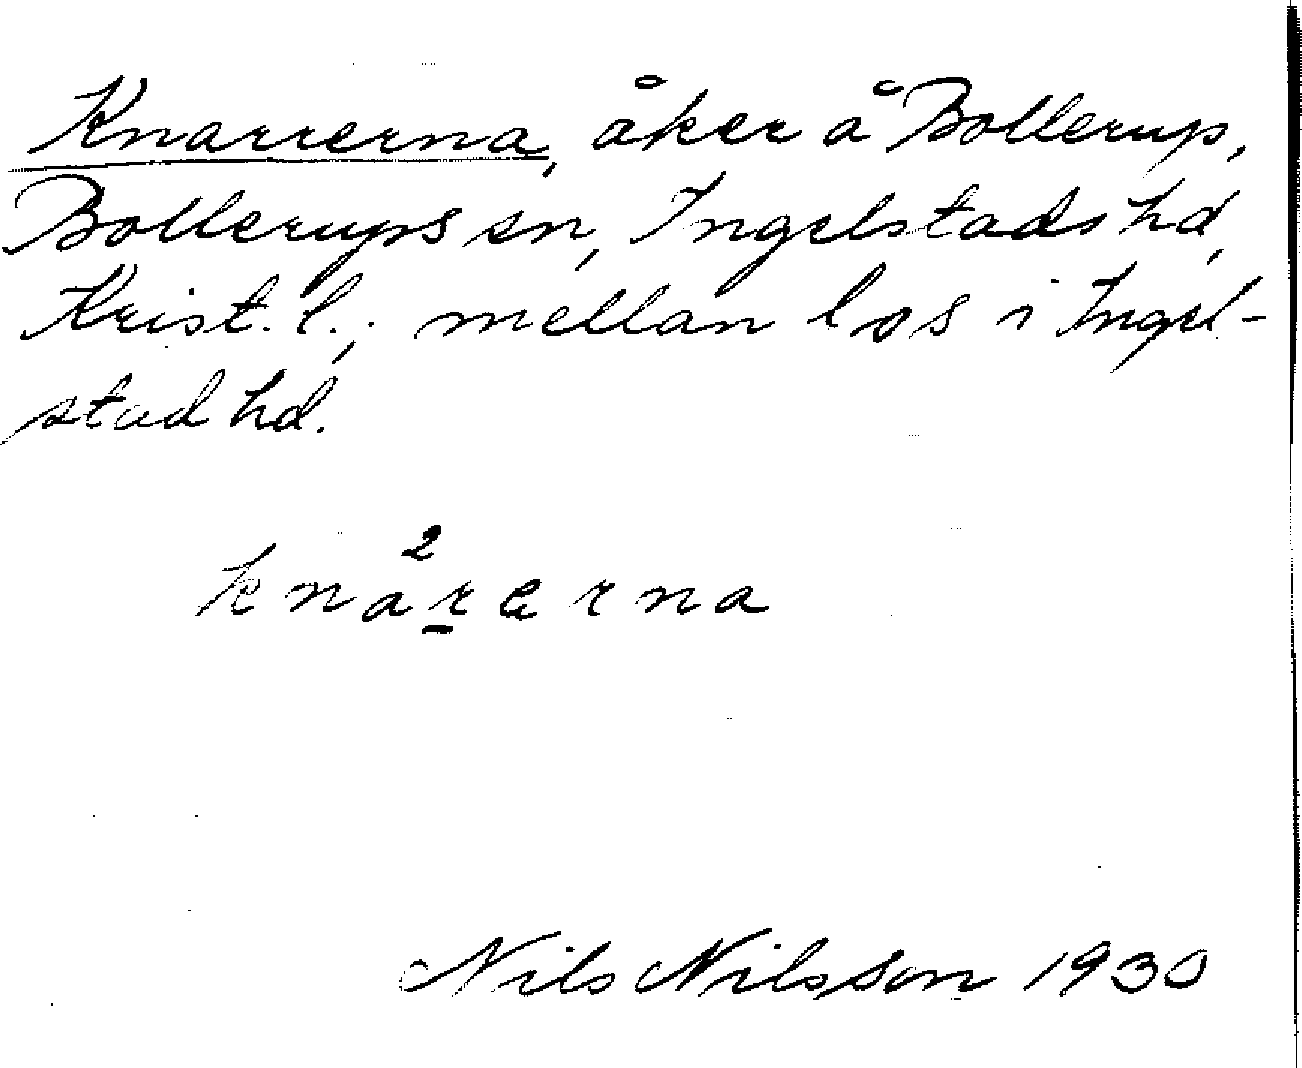 Knarrerna, åker å Bollerup,
Bollerups sn, Ingelstads hd,
Krist. l.; mellan los i Ingel-
stad hd.
2
knarerna
Nils Nilsson 1930